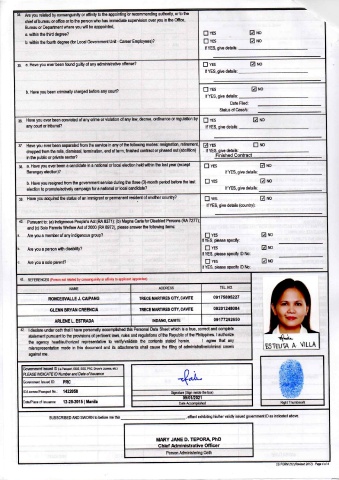 34. Are you related by consanguinity or affinity to the appointing or recommending authority, or to the
chief of bureau or office or to the person who has immediate supervision over you in the Office,
Bureau or Department where you will be appointed,
a. within the third degree?
YES NO
b. within the fourth degree (for Local Government Unit - Career Employees)?
YES NO
If YES, give details:
35. a. Have you ever been found guilty of any administrative offense?
YES NO
If YES, give details:
b. Have you been criminally charged before any court?
YES NO
If YES, give details:
Date Filed:
Status of Case/s:
36. Have you ever been convicted of any crime or violation of any law, decree, ordinance or regulation by
any court or tribunal?
YES NO
If YES, give details:
37. Have you ever been separated from the service in any of the following modes: resignation, retirement,
dropped from the rolls, dismissal, termination, end of term, finished contract or phased out (abolition)
in the public or private sector?
YES NO
If YES, give details:
Finished Contract
38. a. Have you ever been a candidate in a national or local election held within the last year (except
Barangay election)?
YES NO
If YES, give details:
b. Have you resigned from the government service during the three (3)-month period before the last
election to promote/actively campaign for a national or local candidate?
YES NO
If YES, give details:
39. Have you acquired the status of an immigrant or permanent resident of another country?
YES NO
If YES, give details (country):
40. Pursuant to: (a) Indigenous People's Act (RA 8371); (b) Magna Carta for Disabled Persons (RA 7277);
and (c) Solo Parents Welfare Act of 2000 (RA 8972), please answer the following items:
Are you a member of any indigenous group?
YES NO
If YES, please specify:
Are you a person with disability?
YES NO
If YES, please specify ID No:
Are you a solo parent?
YES NO
If YES, please specify ID No:
41. REFERENCES (Person not related by consanguinity or affinity to applicant /appointee)
NAME ADDRESS TEL. NO.
TRECE MARTIRES CITY, CAVITE
GLENN BRYAN CREENCIA TRECE MARTIRES CITY, CAVITE
ARLENE L. ESTRADA INDANG, CAVITE
42. I declare under oath that I have personally accomplished this Personal Data Sheet which is a true, correct and complete
statement pursuant to the provisions of pertinent laws, rules and regulations of the Republic of the Philippines. I authorize
the agency head/authorized representative to verify/validate the contents stated herein. I agree that any
misrepresentation made in this document and its attachments shall cause the filing of administrative/criminal case/s
against me.
ESTELITA A. VILLA
PLEASE INDICATE ID Number and Date of Issuance
Government Issued ID: PRC
ID/License/Passport No.: 1422058
Date/Place of Issuance: 12-20-2015 | Manila
Signature (Sign inside the box)
09/01/2021
Date Accomplished
Right Thumbmark
SUBSCRIBED AND SWORN to before me this , affiant exhibiting his/her validly issued government ID as indicated above.
MARY JANE D. TEPORA, PhD
Chief Administrative Officer
Person Administering Oath